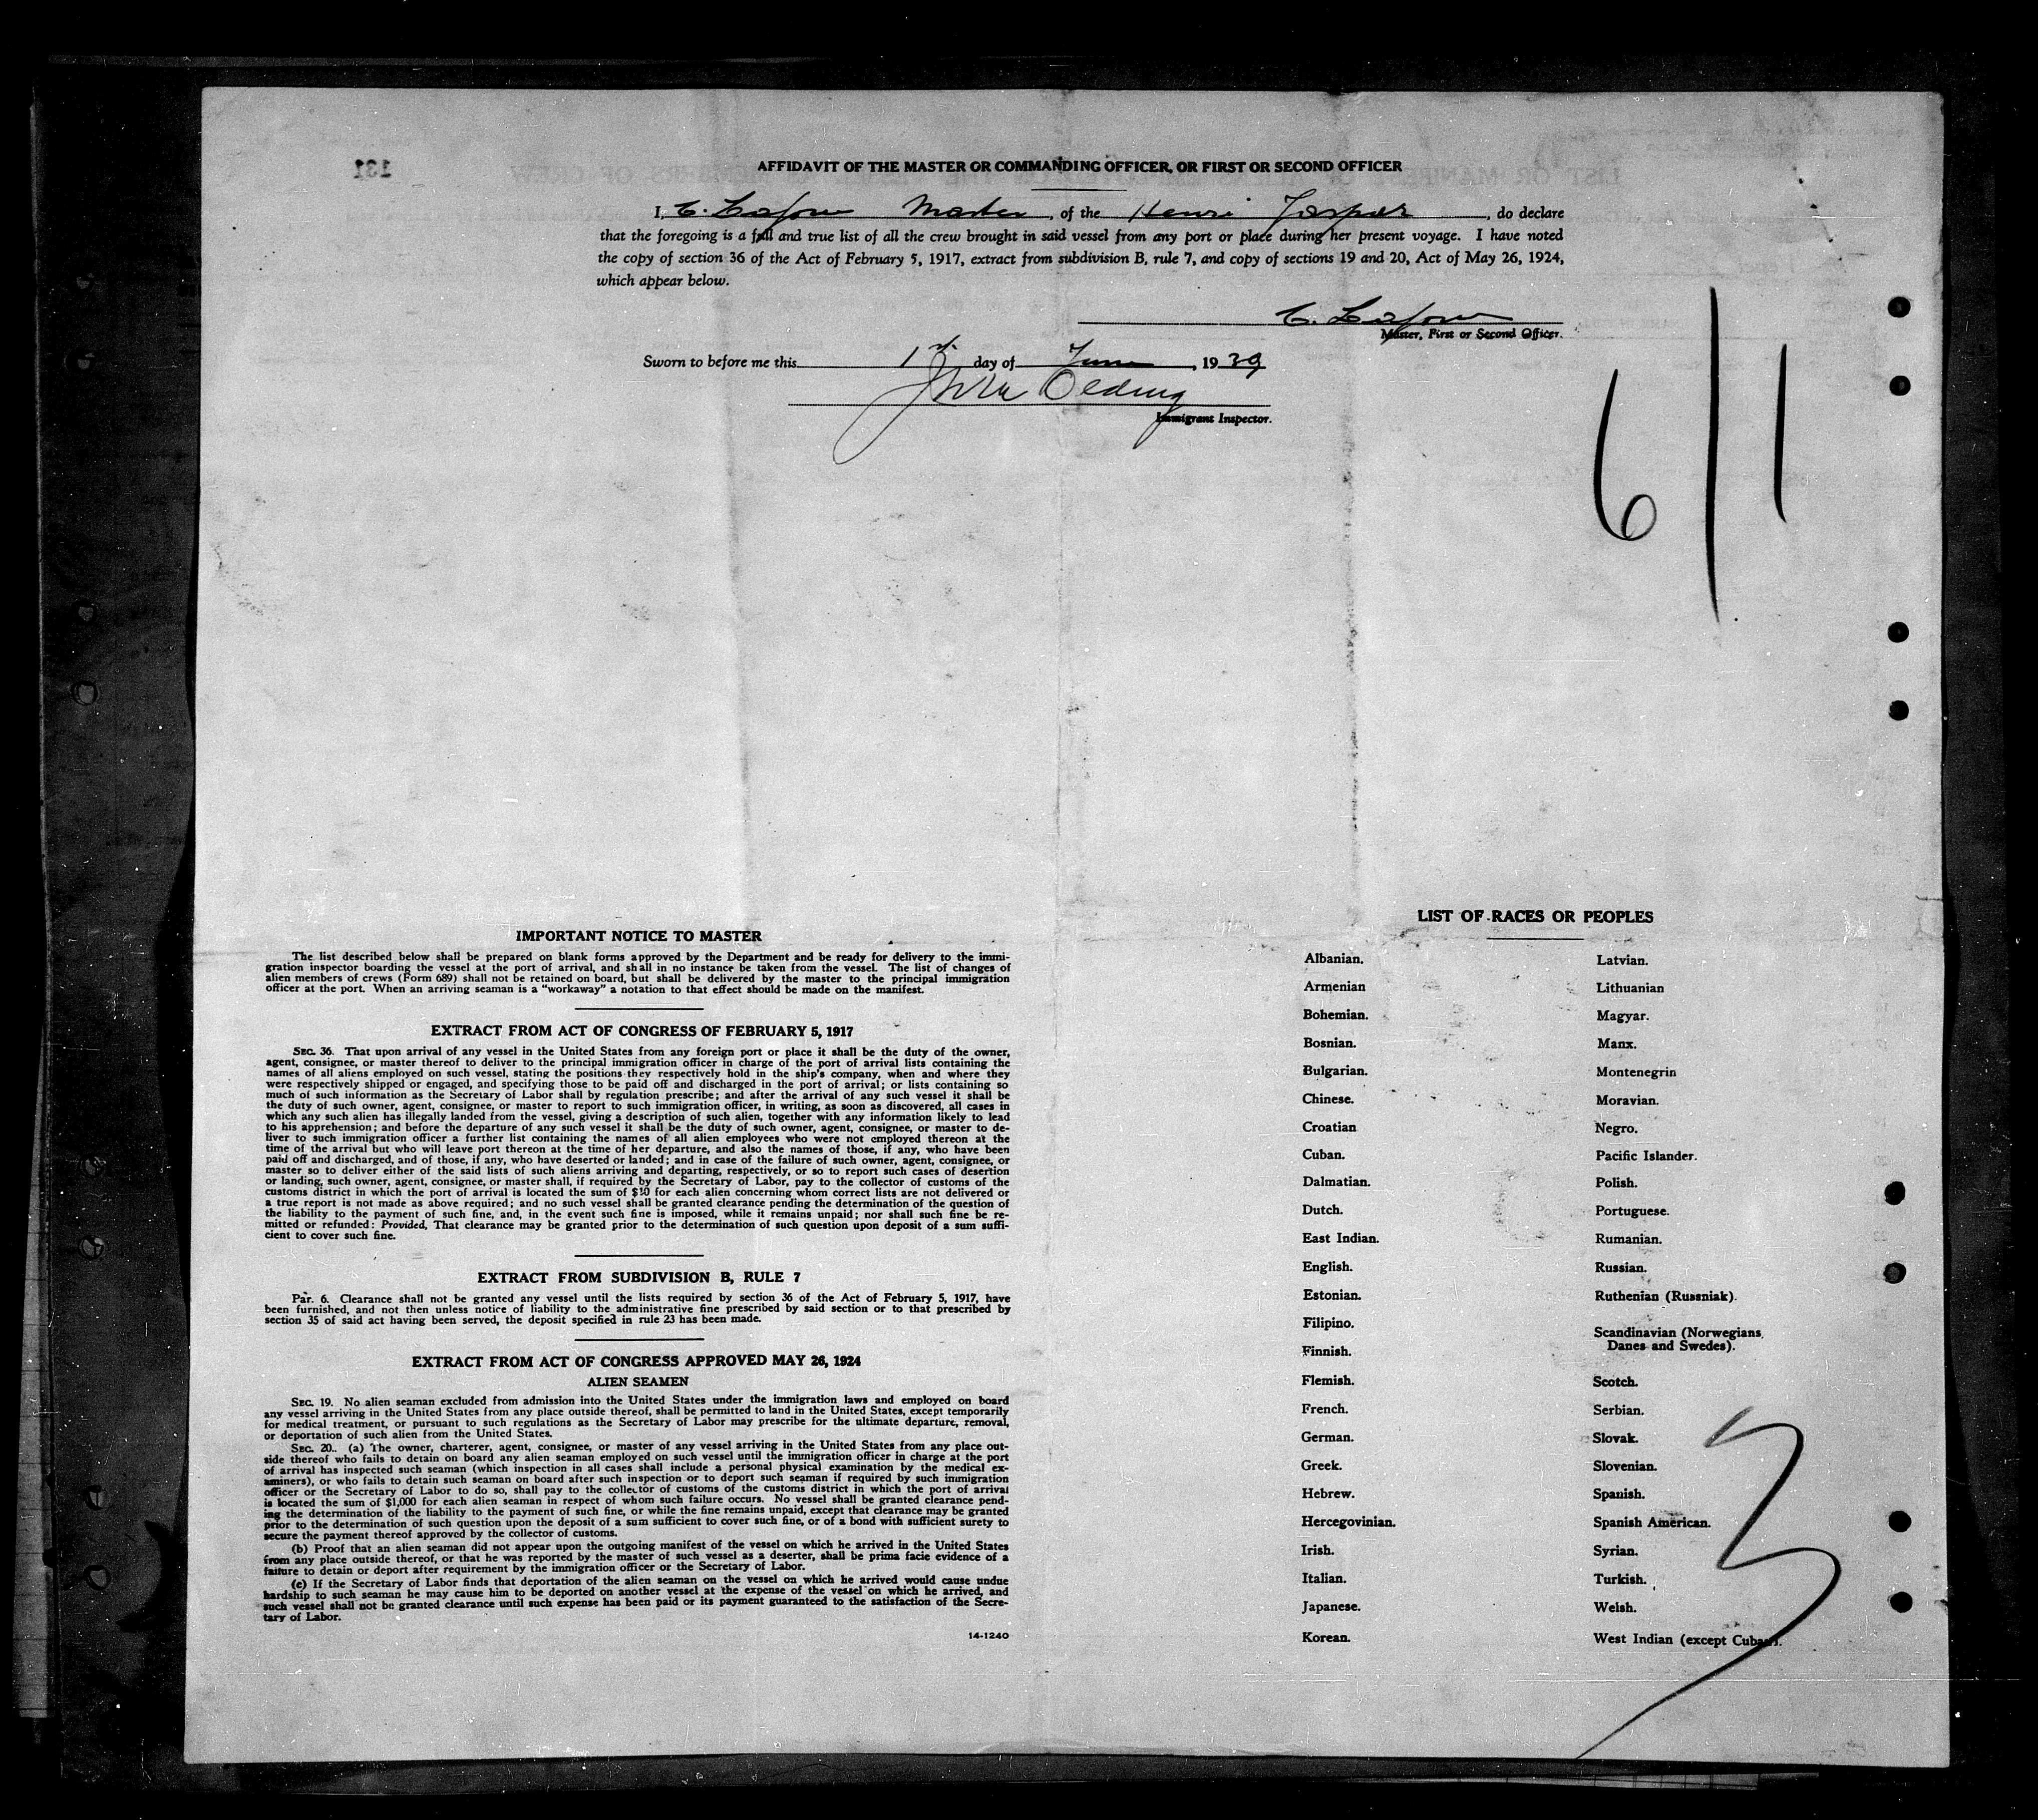 131
AFFIDAVIT OF THE MASTER OR COMMANDING OFFICER, OR FIRST OR SECOND OFFICER
I, Master, of the Henri Jaspar, do declare
that the foregoing is a full and true list of all the crew brought in said vessel from any port or place during her present voyage. I have noted
the copy of section 36 of the Act of February 5, 1917, extract from subdivision B, rule 7, and copy of sections 19 and 20, Act of May 26, 1924,
which appear below.
Master, First or Second Officer.
Sworn to before me this 1 day of June, 1939
Immigrant Inspector.
6/1
IMPORTANT NOTICE TO MASTER
The list described below shall be prepared on blank forms approved by the Department and be ready for delivery to the immi-
gration inspector boarding the vessel at the port of arrival, and shall in no instance be taken from the vessel. The list of changes of
alien members of crews (Form 689) shall not be retained on board, but shall be delivered by the master to the principal immigration
officer at the port. When an arriving seaman is a "workaway" a notation to that effect should be made on the manifest.
EXTRACT FROM ACT OF CONGRESS OF FEBRUARY 5, 1917
SEC. 36. That upon arrival of any vessel in the United States from any foreign port or place it shall be the duty of the owner,
agent, consignee, or master thereof to deliver to the principal immigration officer in charge of the port of arrival lists containing the
names of all aliens employed on such vessel, stating the positions they respectively hold in the ship's company, when and where they
were respectively shipped or engaged, and specifying those to be paid off and discharged in the port of arrival; or lists containing so
much of such information as the Secretary of Labor shall by regulation prescribe; and after the arrival of any such vessel it shall be
the duty of such owner, agent, consignee, or master to report to such immigration officer, in writing, as soon as discovered, all cases in
which any such alien has illegally landed from the vessel, giving a description of such alien, together with any information likely to lead
to his apprehension; and before the departure of any such vessel it shall be the duty of such owner, agent, consignee, or master to de-
liver to such immigration officer a further list containing the names of all alien employees who were not employed thereon at the
time of the arrival but who will leave port thereon at the time of her departure, and also the names of those, if any, who have been
paid off and discharged, and of those, if any, who have deserted or landed; and in case of the failure of such owner, agent, consignee, or
master so to deliver either of the said lists of such aliens arriving and departing, respectively, or so to report such cases of desertion
or landing, such owner, agent, consignee, or master shall, if required by the Secretary of Labor, pay to the collector of customs of the
customs district in which the port of arrival is located the sum of $10 for each alien concerning whom correct lists are not delivered or
a true report is not made as above required; and no such vessel shall be granted clearance pending the determination of the question of
the liability to the payment of such fine, and, in the event such fine is imposed, while it remains unpaid; nor shall such fine be re-
mitted or refunded: Provided, That clearance may be granted prior to the determination of such question upon deposit of a sum suffi-
cient to cover such fine.
EXTRACT FROM SUBDIVISION B, RULE 7
Par. 6. Clearance shall not be granted any vessel until the lists required by section 36 of the Act of February 5, 1917, have
been furnished, and not then unless notice of liability to the administrative fine prescribed by said section or to that prescribed by
section 35 of said act having been served, the deposit specified in rule 23 has been made.
EXTRACT FROM ACT OF CONGRESS APPROVED MAY 26, 1924
ALIEN SEAMEN
SEC. 19. No alien seaman excluded from admission into the United States under the immigration laws and employed on board
any vessel arriving in the United States from any place outside thereof, shall be permitted to land in the United States, except temporarily
for medical treatment, or pursuant to such regulations as the Secretary of Labor may prescribe for the ultimate departure, removal,
or deportation of such alien from the United States.
SEC. 20. (a) The owner, charterer, agent, consignee, or master of any vessel arriving in the United States from any place out-
side thereof who fails to detain on board any alien seaman employed on such vessel until the immigration officer in charge at the port
of arrival has inspected such seaman (which inspection in all cases shall include a personal physical examination by the medical ex-
aminers), or who fails to detain such seaman on board after such inspection or to deport such seaman if required by such immigration
officer or the Secretary of Labor to do so, shall pay to the collector of customs of the customs district in which the port of arrival
is located the sum of $1,000 for each alien seaman in respect of whom such failure occurs. No vessel shall be granted clearance pend-
ing the determination of the liability to the payment of such fine, or while the fine remains unpaid, except that clearance may be granted
prior to the determination of such question upon the deposit of a sum sufficient to cover such fine, or of a bond with sufficient surety to
secure the payment thereof approved by the collector of customs.
(b) Proof that an alien seaman did not appear upon the outgoing manifest of the vessel on which he arrived in the United States
from any place outside thereof, or that he was reported by the master of such vessel as a deserter, shall be prima facie evidence of a
failure to detain or deport after requirement by the immigration officer or the Secretary of Labor.
(c) If the Secretary of Labor finds that deportation of the alien seaman on the vessel on which he arrived would cause undue
hardship to such seaman he may cause him to be deported on another vessel at the expense of the vessel on which he arrived, and
such vessel shall not be granted clearance until such expense has been paid or its payment guaranteed to the satisfaction of the Secre-
tary of Labor.
14-1240
LIST OF RACES OR PEOPLES
Albanian.
Armenian
Bohemian.
Bosnian.
Bulgarian.
Chinese.
Croatian
Cuban.
Dalmatian.
Dutch.
East Indian.
English.
Estonian.
Filipino.
Finnish.
Flemish.
French.
German.
Greek.
Hebrew.
Hercegovinian.
Irish.
Italian.
Japanese.
Korean.
Latvian.
Lithuanian
Magyar.
Manx.
Montenegrin
Moravian.
Negro.
Pacific Islander.
Polish.
Portuguese.
Rumanian.
Russian.
Ruthenian (Russniak).
Scandinavian (Norwegians,
Danes and Swedes).
Scotch.
Serbian.
Slovak.
Slovenian.
Spanish.
Spanish American.
Syrian.
Turkish.
Welsh.
West Indian (except Cuban).
3